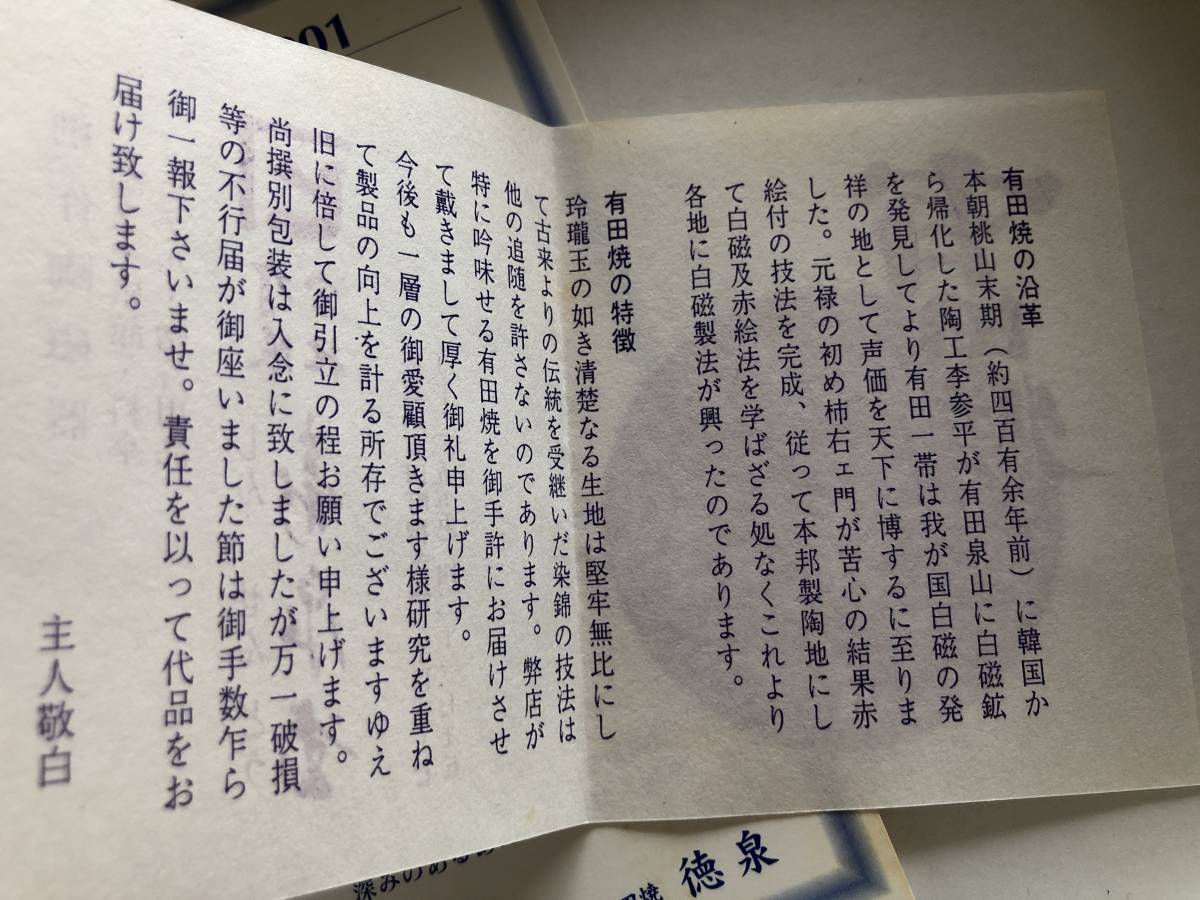 有田焼の沿革
本朝桃山末期（約四百有余年前）に韓国か
ら帰化した陶工李参平が有田泉山に白磁鉱
を発見してより有田一帯は我が国白磁の発
祥の地として声価を天下に博するに至りま
した。元禄の初め柿右ェ門が苦心の結果赤
絵付の技法を完成、従って本邦製陶地にし
て白磁及赤絵法を学ばざる処なくこれより
各地に白磁製法が興ったのであります。
有田焼の特徴
玲瓏玉の如き清楚なる生地は堅牢無比にし
て古来よりの伝統を受継いだ染錦の技法は
他の追随を許さないのであります。弊店が
特に吟味せる有田焼を御手許にお届けさせ
て戴きまして厚く御礼申上げます。
今後も一層の御愛顧頂きます様研究を重ね
て製品の向上を計る所存でございますゆえ
旧に倍して御引立の程お願い申上げます。
尚撰別包装は入念に致しましたが万一破損
等の不行届が御座いました節は御手数乍ら
御一報下さいませ。責任を以って代品をお
届け致します。
主人敬白
001
深みのある
焼 徳泉